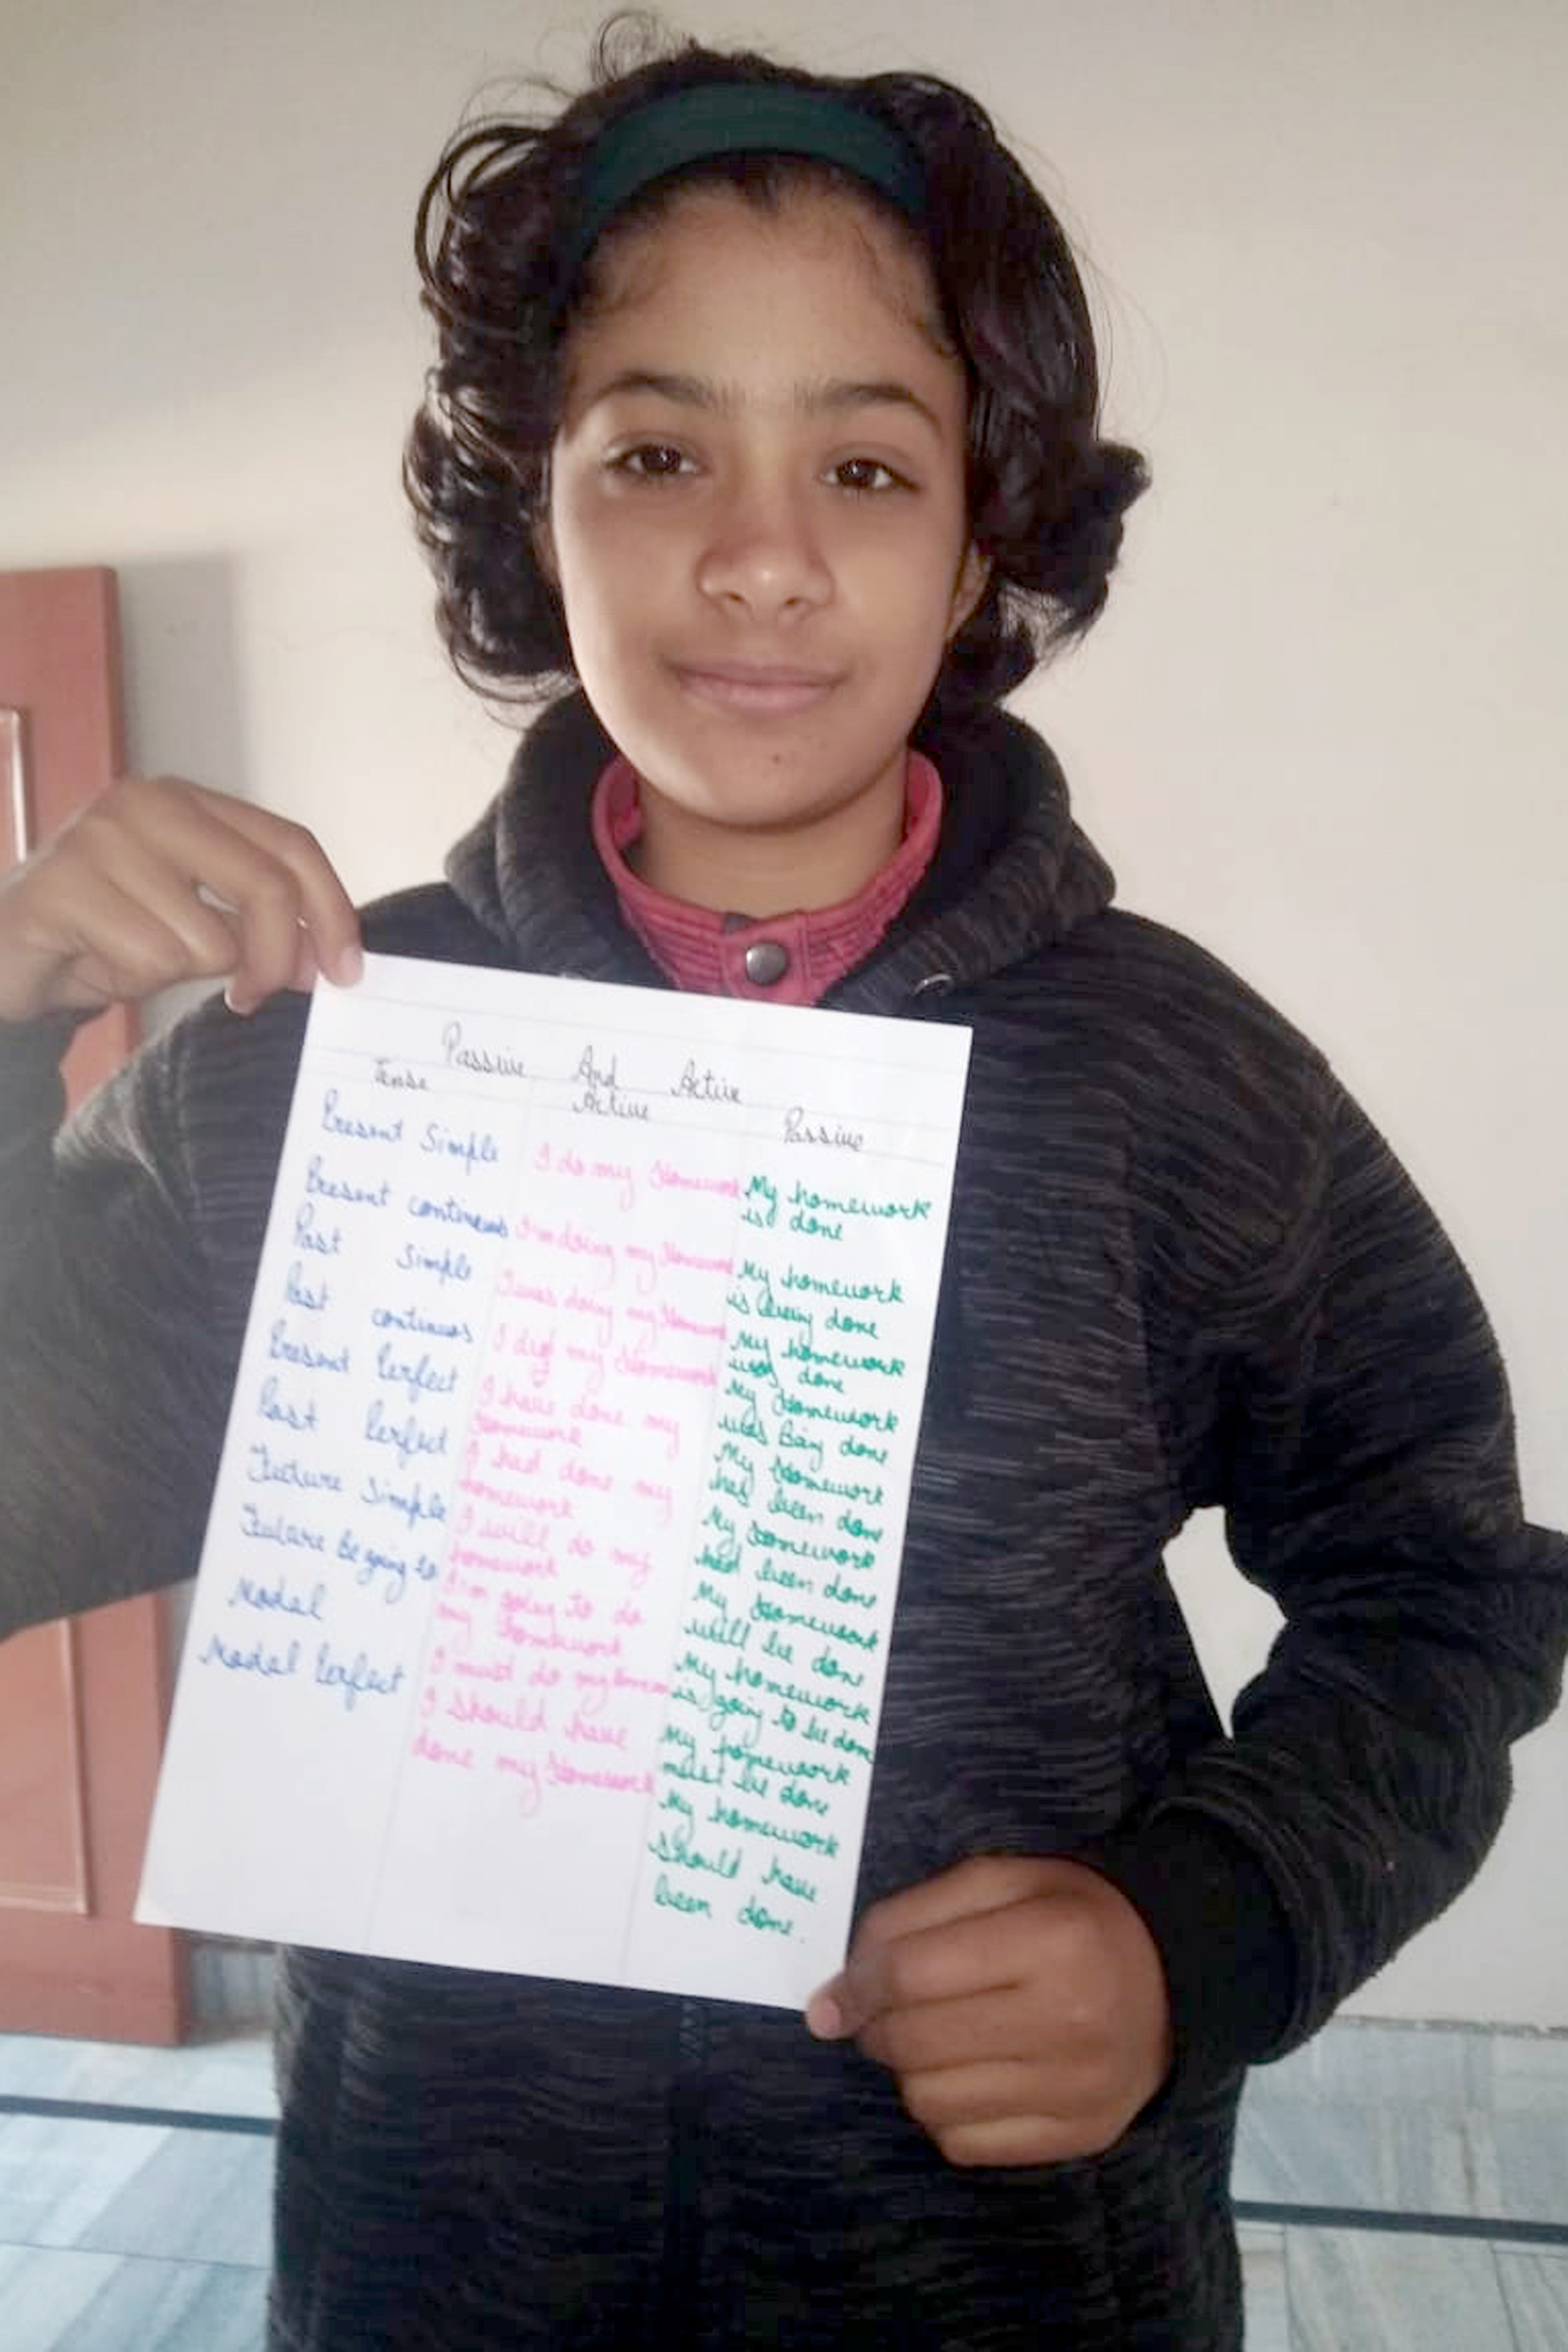 Passive And Active
Tense Active Passive
Present Simple
Present continuous
Past Simple
Past continuos
Present Perfect
Past Perfect
Future Simple
Future be going to
Modal
Modal Perfect
I do my Homework
I'm doing my Homework
I was doing my Homework
I did my Homework
I have done my
Homework
I had done my
homework
I will do my
homework
I'm going to do
my Homework
I must do my
I should have
done my Homework
My homework
is done
My homework
is being done
My homework
was done
My Homework
was done
My Homework
has been done
My Homework
had been done
My Homework
will be done
My homework
is going to be done
My homework
must be done
My homework
should have
been done.